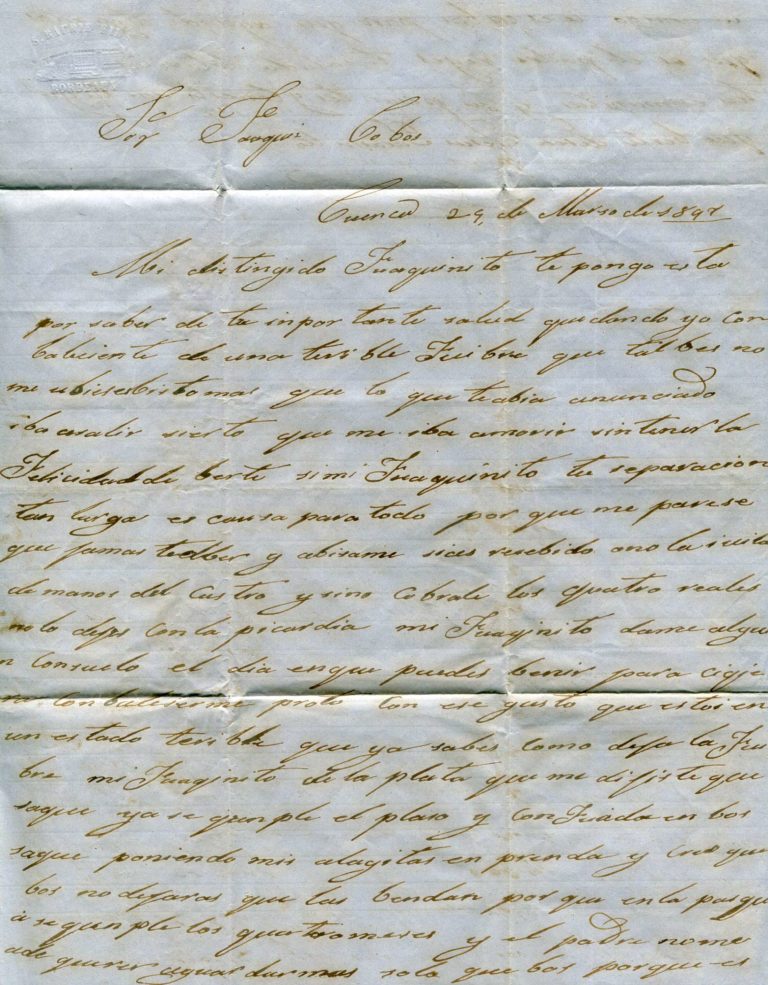 BORDEAUX
Sor Joaqui Cobos
Cuenca 29, de Marso de 1897
Mi distingido Juaquinito te pongo esta
por saber de tu inportante salud quedando yo con
baleciente de una terible Fiibre que talbes no
me ubiesesbistomas que lo que teabia anunciado
iba asalir sierto que me iba amorir sintener la
Felicidad de berte si mi Juaquinito tu separacion
tan larga es causa para todo por que me parese
que jamas y abisame resebido ono la
de manos del Castro y sino cobrale los quatro reales
no lo dejes con la picardia mi Juaqinito dame algu
n consuelo el dia enque puedes benir para
conbaleserme proto con ese gusto que estoi en
un estado terible que ya sabes como deja la Fii
bre mi Juaqinito de la plata que me dijiste que
saque ya se qunple el plaso y conFiada en bos
saque poniendo mis alagitas en prenda y creo que
bos no dejaras que las bendan por que en la pasqu
a se qunple los quatro meses y el padre no me
ade querer aguardarmas solo que bos porque es